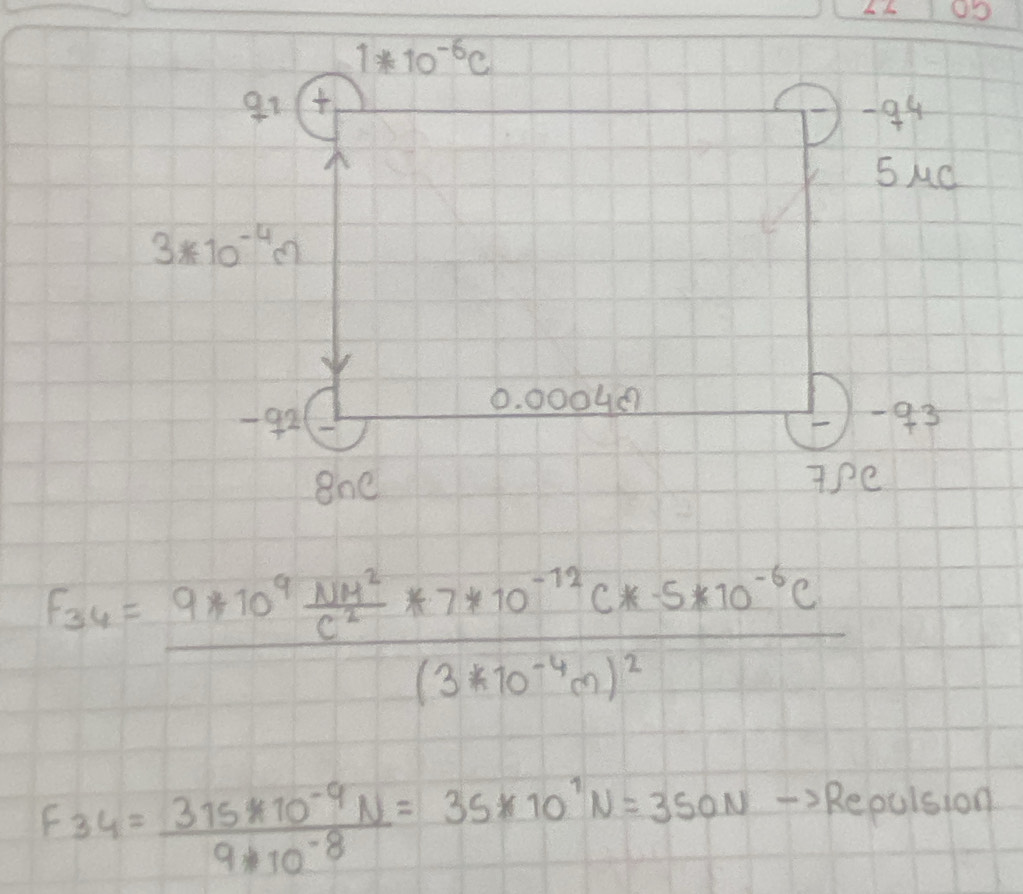 22 05
1*10⁻⁶C
q1 + - -q4
5 μC
3*10⁻⁴m
0.0004m
-q2 - - -q3
8nC 7PC
F34 = 9*10⁹ NM²/C² *7*10⁻¹²C*-5*10⁻⁶C
(3*10⁻⁴m)²
F34 = 315*10⁻⁹N = 35*10¹N = 350N -> Repulsion
9*10⁻⁸